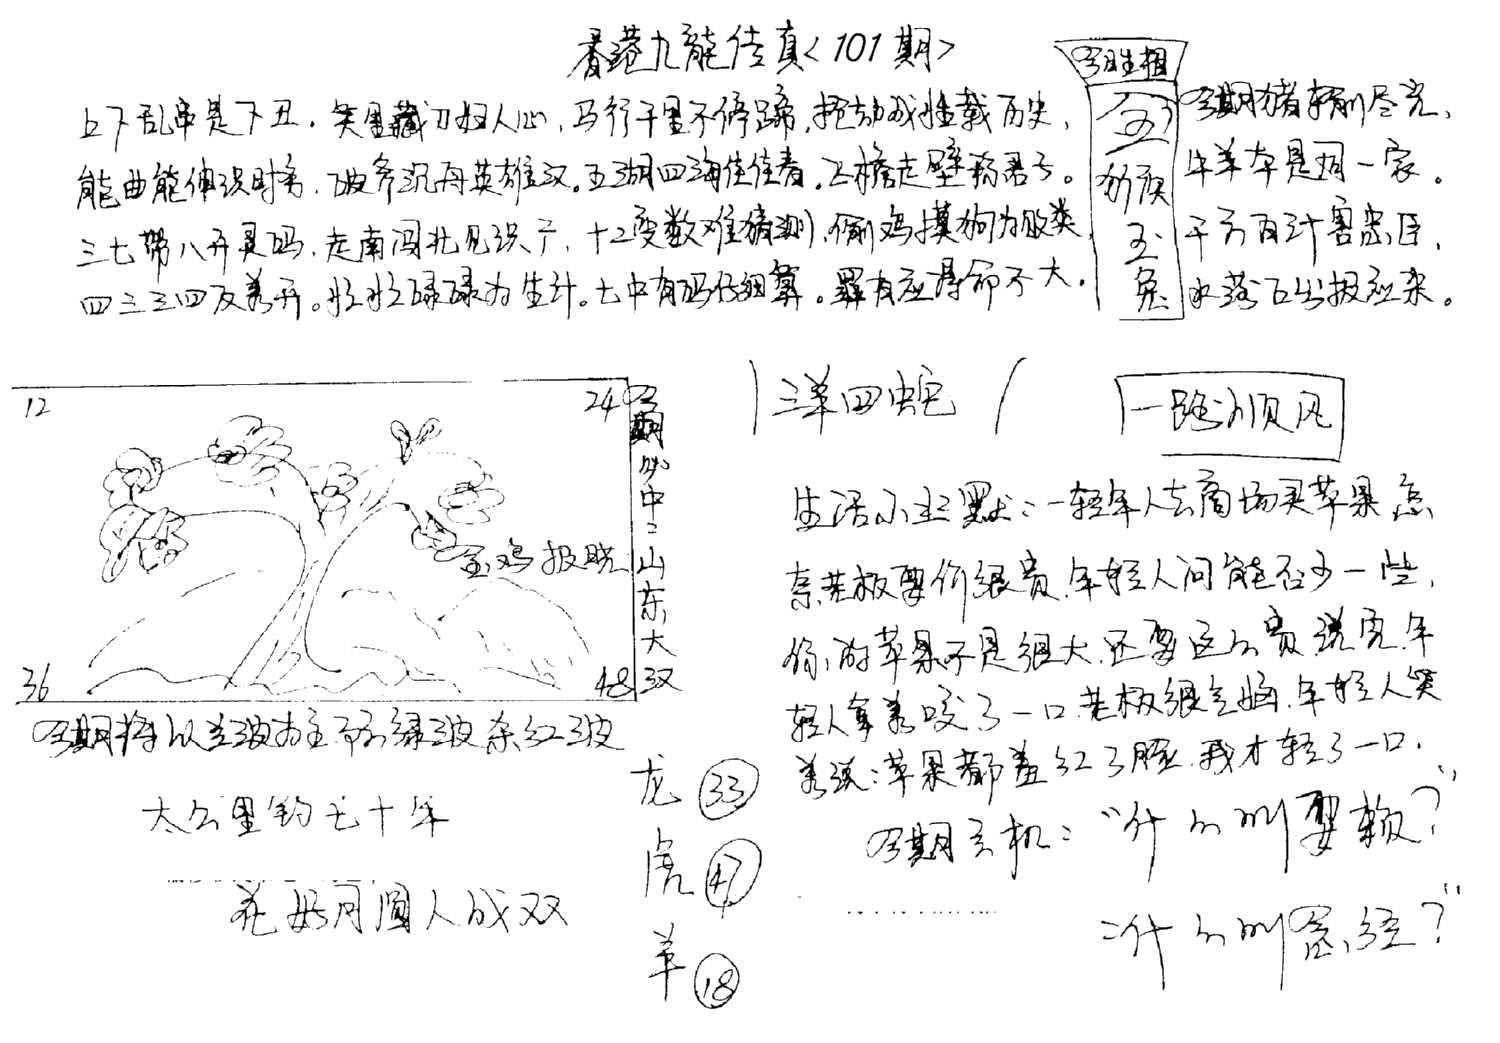 香港九龍传真<101期>
上下乱串是下丑．笑里藏刀妇人心，马行千里不停蹄，
能曲能伸识时务，破斧沉舟英雄汉。五湖四海佳佳春。飞檐走壁称君子。
三七带八开灵码，走南闯北见识广，十二变数难猜测，偷鸡摸狗为败类，
四三三四反差开。忙忙碌碌为生计．七中有码仔细算。罪有应得命不大．
今日生相
今期猪输尽光，
牛羊本是同一家。
千方百计害忠臣，
水落石出报应来。
玉兔
12
24
玉鸡报晓
36
48
今期必中：山东大汉
今期将以兰波为主 绿波杂红波
太公里钓七十年
花好月圆人成双
龙 33
虎 47
羊 18
三羊四蛇
一路顺风
生活小幽默：一轻年人去商场买苹果怎
奈老板要价很贵．年轻人问能否少一些，
你的苹果不是很大．还要这么贵．说完．年
轻人拿着咬了一口．老板很气恼．年轻人笑
着说：苹果都羞红了脸．我才轻了一口．
今期玄机："什么叫耍赖？"
：什么叫念经？"